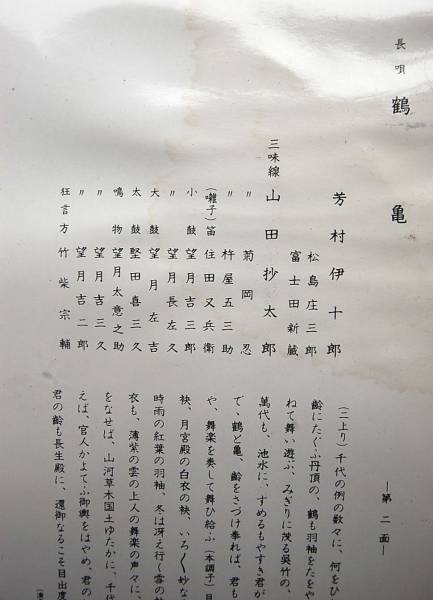 長唄 鶴亀
芳村伊十郎
松島庄三郎
富士田新蔵
三味線 山田抄太郎
〃 菊岡忍
〃 杵屋五三助
(囃子)笛 住田又兵衛
小鼓 望月吉三郎
〃 望月長左久
大鼓 望月左吉
太鼓 堅田喜三久
鳴物 望月太意之助
〃 望月吉三久
〃 望月吉二郎
狂言方 竹柴宗輔
―第二面―
(二上り)千代の例の数々に、何をひ
齢にたぐふ丹頂の、鶴も羽袖をたをや
ねて舞い遊ぶ、みぎりに茂る呉竹の、
萬代も、池水に、すめるもやすき君が
で、鶴と亀、齢をさづけ奉れば、君も
や、舞楽を奏して舞ひ給ふ(本調子)月
袂、月宮殿の白衣の袂、いろ〳〵妙な
時雨の紅葉の羽袖、冬は冴え行く雪の袂
衣も、薄紫の雲の上人の舞楽の声々に、
をなせば、山河草木国土ゆたかに、千代
えば、官人かよてふ御輿をはやめ、君の
君の齢も長生殿に、還御なるこそ目出度